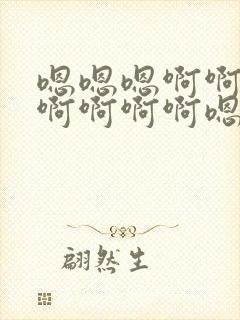 嗯嗯嗯啊啊
啊啊啊啊嗯
翩然生